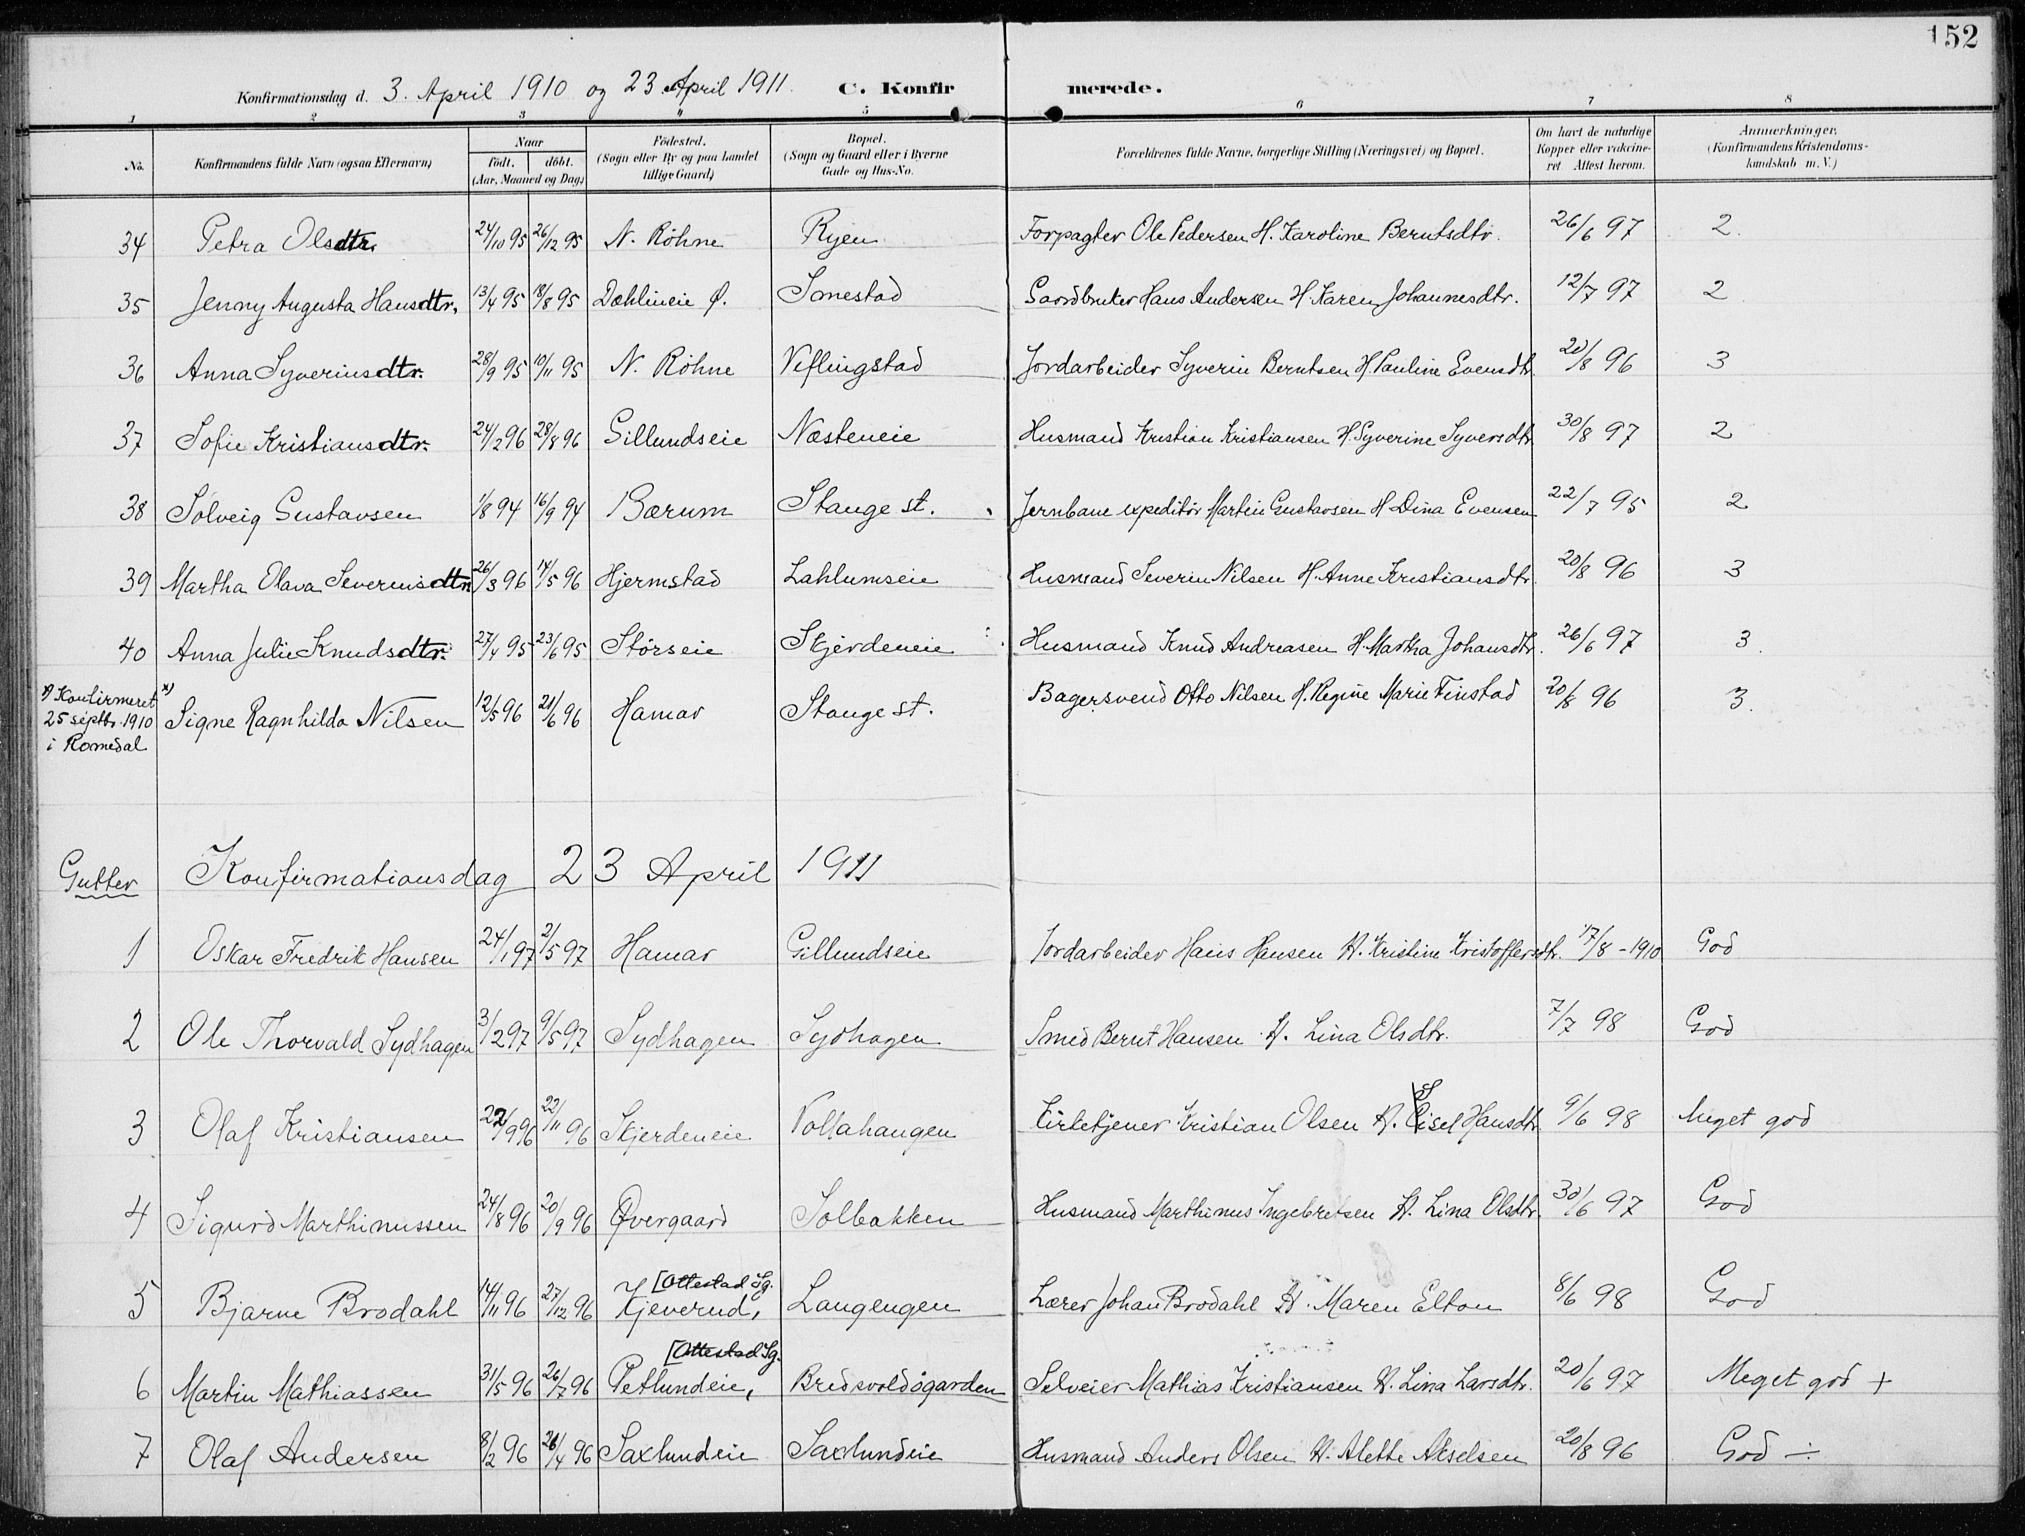 152
Konfirmationsdag d. 3. April 1910 og 23 April 1911. C. Konfirmerede.
1 2 3 4 5 6 7 8
No. Konfirmandens fulde Navn (ogsaa Efternavn) Naar født. døbt. (Aar, Maaned og Dag) Födested. (Sogn eller By og paa Landet tillige Gaard) Bopæl. (Sogn og Gaard eller i Byerne Gade og Hus-No. Forældrenes fulde Navne, borgerlige Stilling (Næringsvei) og Bopæl. Om havt de naturlige Kopper eller vakcineret. Attest herom. Anmærkninger. (Konfirmandens Kristendomskundskab m. V.)
34 Petra Olsdtr. 24/10 95 26/12 95 N. Röhne Ryen Forpagter Ole Pedersen H. Karoline Berntsdtr. 26/6 97 2.
35 Jenny Augusta Hansdtr. 13/4 95 18/8 95 Dæhlineie Ø. Smestad Gaardbruker Hans Andersen H. Karen Johannesdtr. 12/7 97 2
36 Anna Syverinsdtr. 28/9 95 10/11 95 N. Röhne Veflingstad Jordarbeider Syverin Berntsen H. Pauline Evensdtr. 20/8 96 3
37 Sofie Kristiansdtr. 24/2 96 28/8 96 Gillundseie Næsteneie Husmand Kristian Kristiansen H. Syverine Syversdtr. 30/8 97 2
38 Solveig Gustavsen 1/8 94 16/9 94 Bærum Stange st. Jernbaneexpeditör Martin Gustavsen H. Dina Evensen 22/7 95 2
39 Martha Olava Severinsdtr. 26/3 96 14/5 96 Hjermstad Lahlumseie Husmand Severin Nilsen H. Anne Kristiansdtr. 20/8 96 3
40 Anna Julie Knudsdtr. 27/4 95 23/6 95 Störseie Skjerdeneie Husmand Knud Andreasen H. Martha Johansdtr. 26/6 97 3.
x) Konfirmeret 25 septbr. 1910 i Romedal x) Signe Ragnhilda Nilsen 12/5 96 21/6 96 Hamar Stange st. Bagersvend Otto Nilsen H. Regine Marie Finstad 20/8 96 3.
Gutter Konfirmationsdag 23 April 1911
1 Oskar Fredrik Hansen 24/1 97 2/5 97 Hamar Gillundseie Jordarbeider Hans Hansen H. Kristine Kristoffersdtr. 17/8 - 1910 God
2 Ole Thorvald Sydhagen 3/2 97 9/5 97 Sydhagen Sydhagen Smed Bernt Hansen H. Lina Olsdtr. 7/7 98 God
3 Olaf Kristiansen 22/9 96 22/11 96 Skjerdeneie Vollahaugen Kirketjener Kristian Olsen H. Sisel Hansdtr. 9/6 98 Meget god
4 Sigurd Marthinussen 24/8 96 20/9 96 Øvergaard Solbakken Husmand Marthinus Ingebretsen H. Lina Olsdtr. 30/6 97 God
5 Bjarne Brodahl 14/11 96 27/12 96 Kjeverud, [Ottestad Sg. Langengen Lærer Johan Brodahl H. Maren Elton 8/6 98 God
6 Martin Mathiassen 31/5 96 26/7 96 Petlundeie, [Ottestad Sg. Bredsvoldsgarden Selveier Mathias Kristiansen H. Lina Larsdtr. 20/6 97 Meget god +
7 Olaf Andersen 8/2 96 26/4 96 Saxlundeie Saxlundeie Husmand Anders Olsen H. Alette Akselsen 20/8 96 God ÷